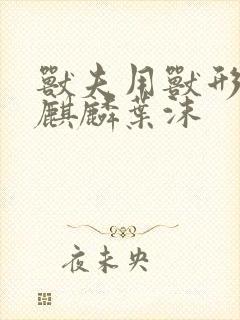 獸夫用獸形
麒麟葉沫
夜未央